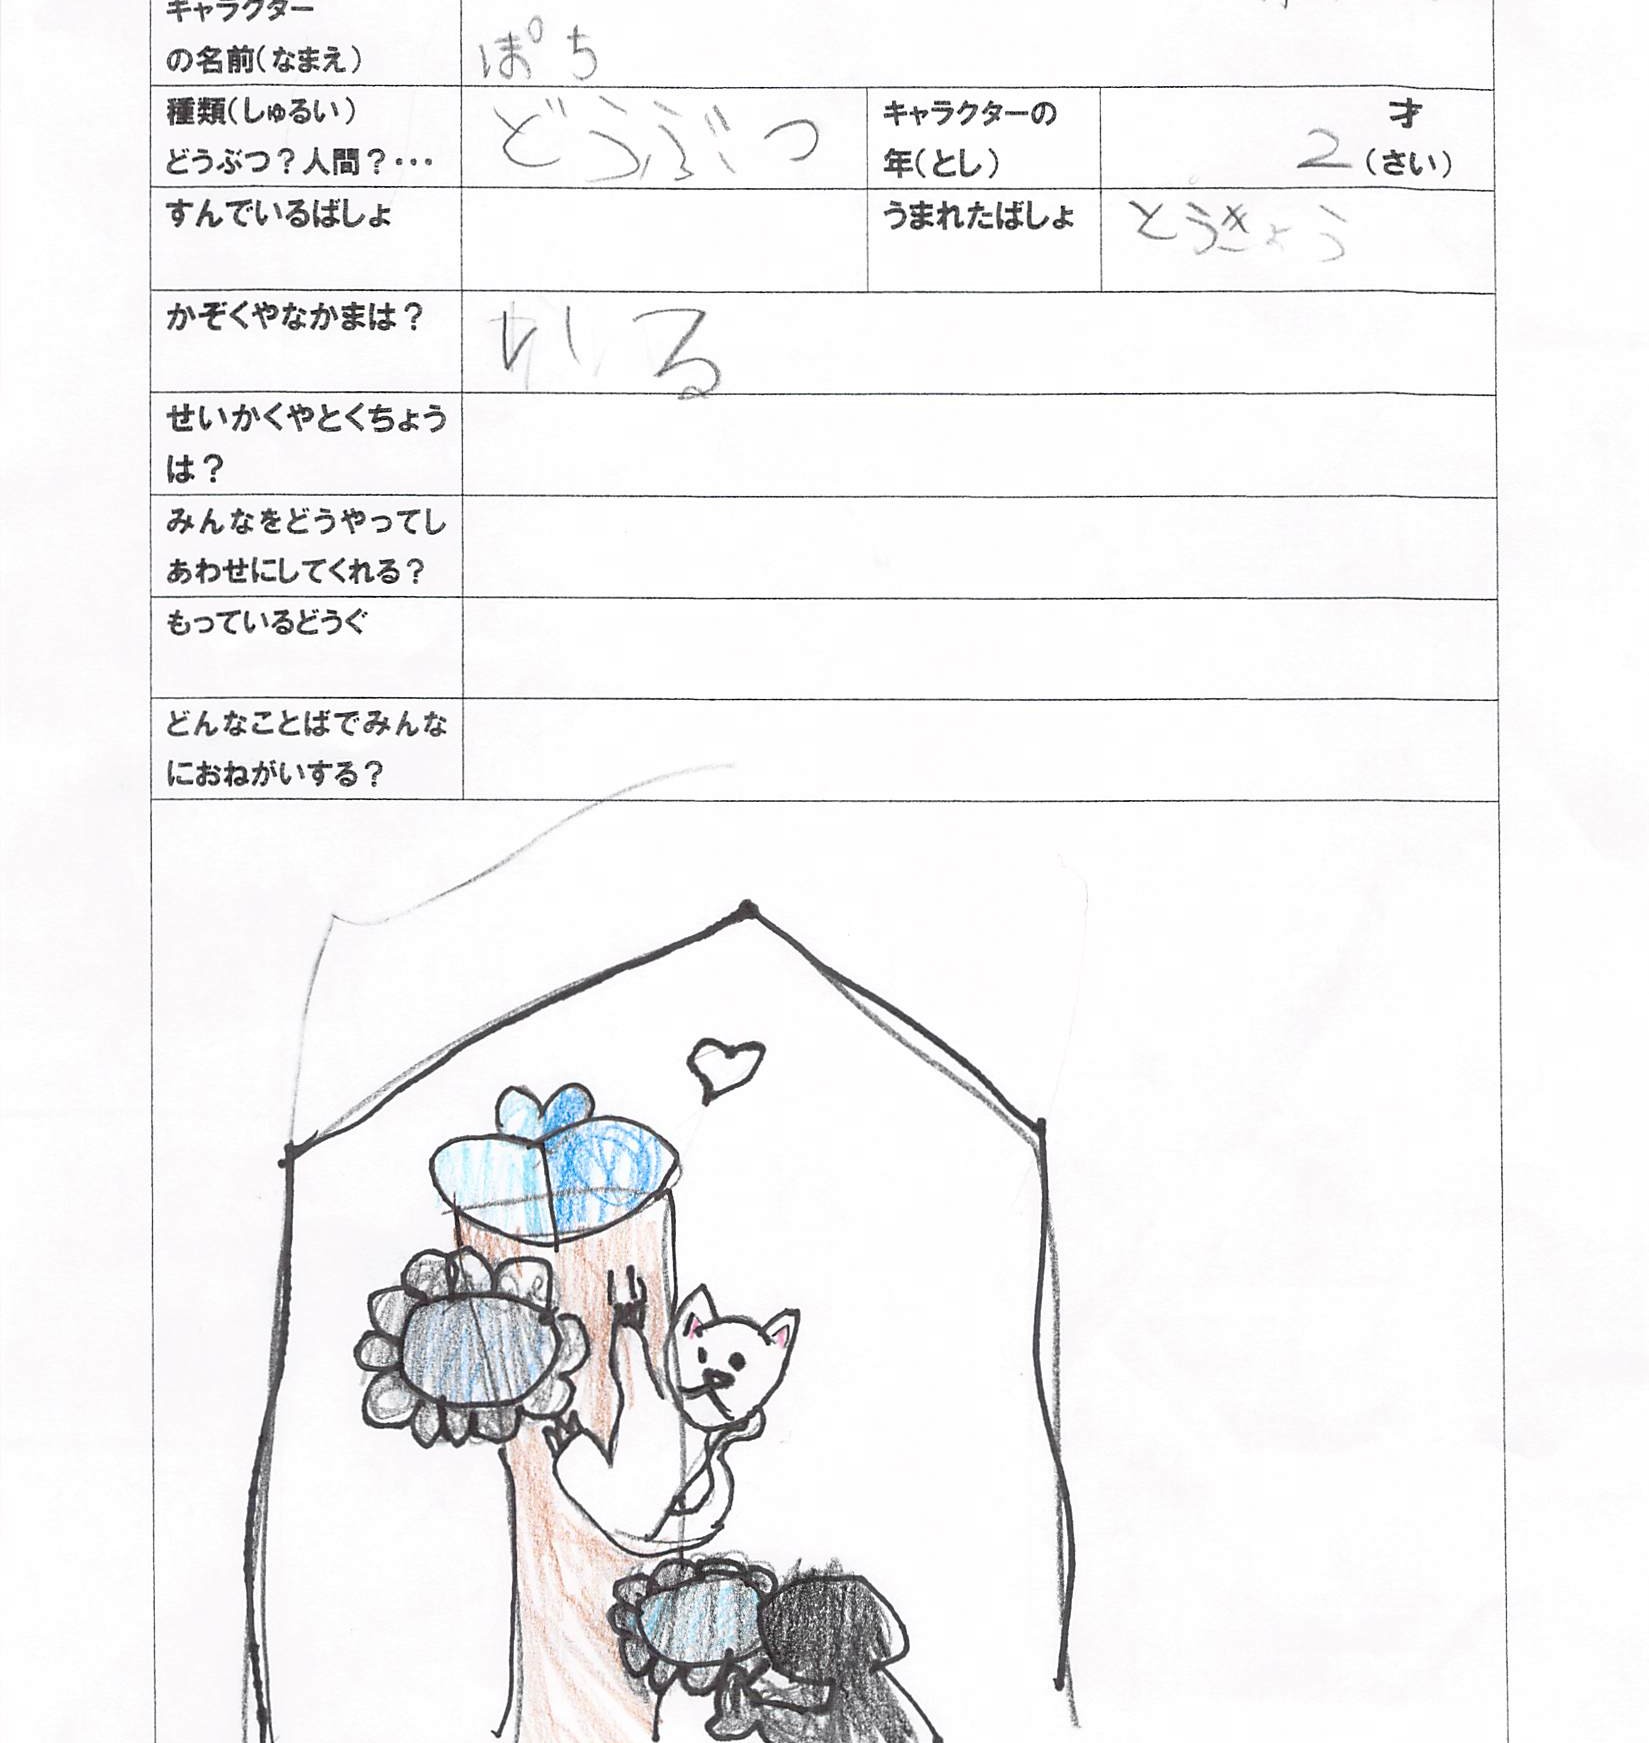 キャラクター
の名前(なまえ)
ぽち
種類(しゅるい)
どうぶつ?人間?・・・
どうぶつ
キャラクターの
年(とし)
才
2(さい)
すんでいるばしょ
うまれたばしょ
とうきょう
かぞくやなかまは?
いる
せいかくやとくちょう
は?
みんなをどうやってし
あわせにしてくれる?
もっているどうぐ
どんなことばでみんな
におねがいする?